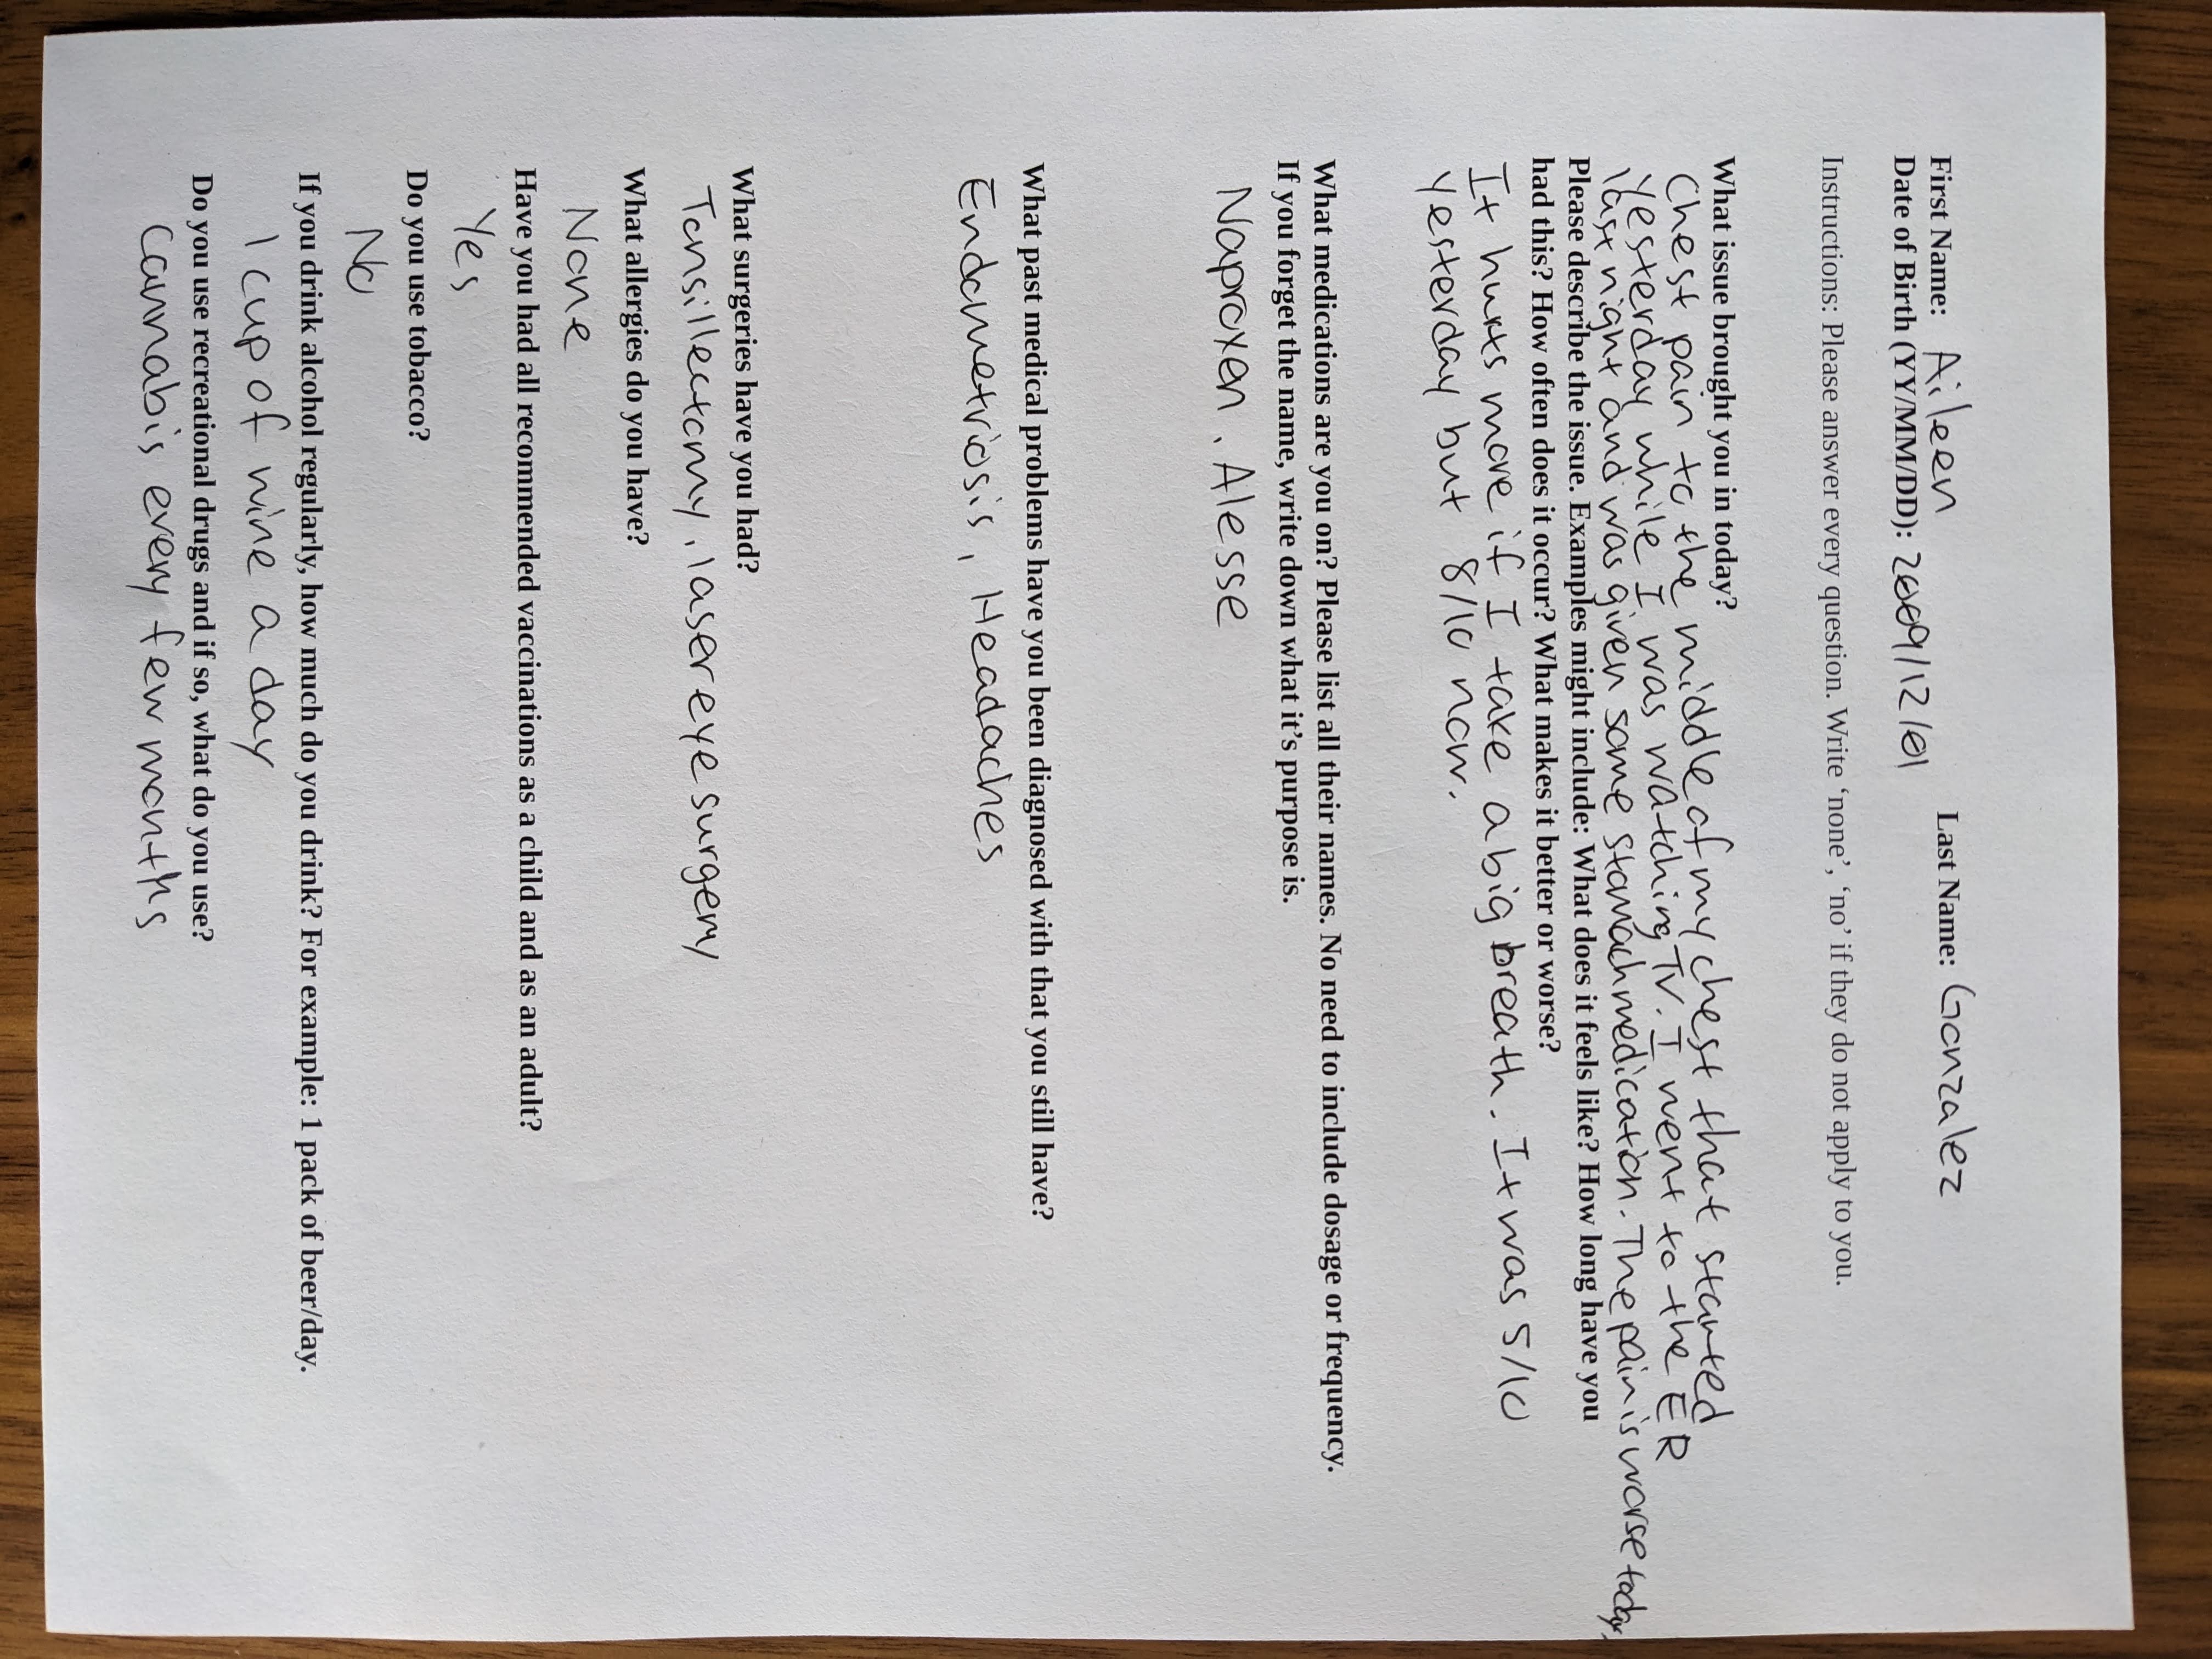 First Name: Aileen Last Name: Gonzalez
Date of Birth (YY/MM/DD): 2009/12/01
Instructions: Please answer every question. Write ‘none’, ‘no’ if they do not apply to you.
What issue brought you in today?
Chest pain to the middle of my chest that started
yesterday while I was watching TV. I went to the ER
last night and was given some stomach medication. The pain is worse today.
Please describe the issue. Examples might include: What does it feels like? How long have you
had this? How often does it occur? What makes it better or worse?
It hurts more if I take a big breath. It was 5/10
yesterday but 8/10 now.
What medications are you on? Please list all their names. No need to include dosage or frequency.
If you forget the name, write down what it’s purpose is.
Naproxen, Alesse
What past medical problems have you been diagnosed with that you still have?
Endometriosis, Headaches
What surgeries have you had?
Tonsillectomy, laser eye surgery
What allergies do you have?
None
Have you had all recommended vaccinations as a child and as an adult?
Yes
Do you use tobacco?
No
If you drink alcohol regularly, how much do you drink? For example: 1 pack of beer/day.
1 cup of wine a day
Do you use recreational drugs and if so, what do you use?
Cannabis every few months